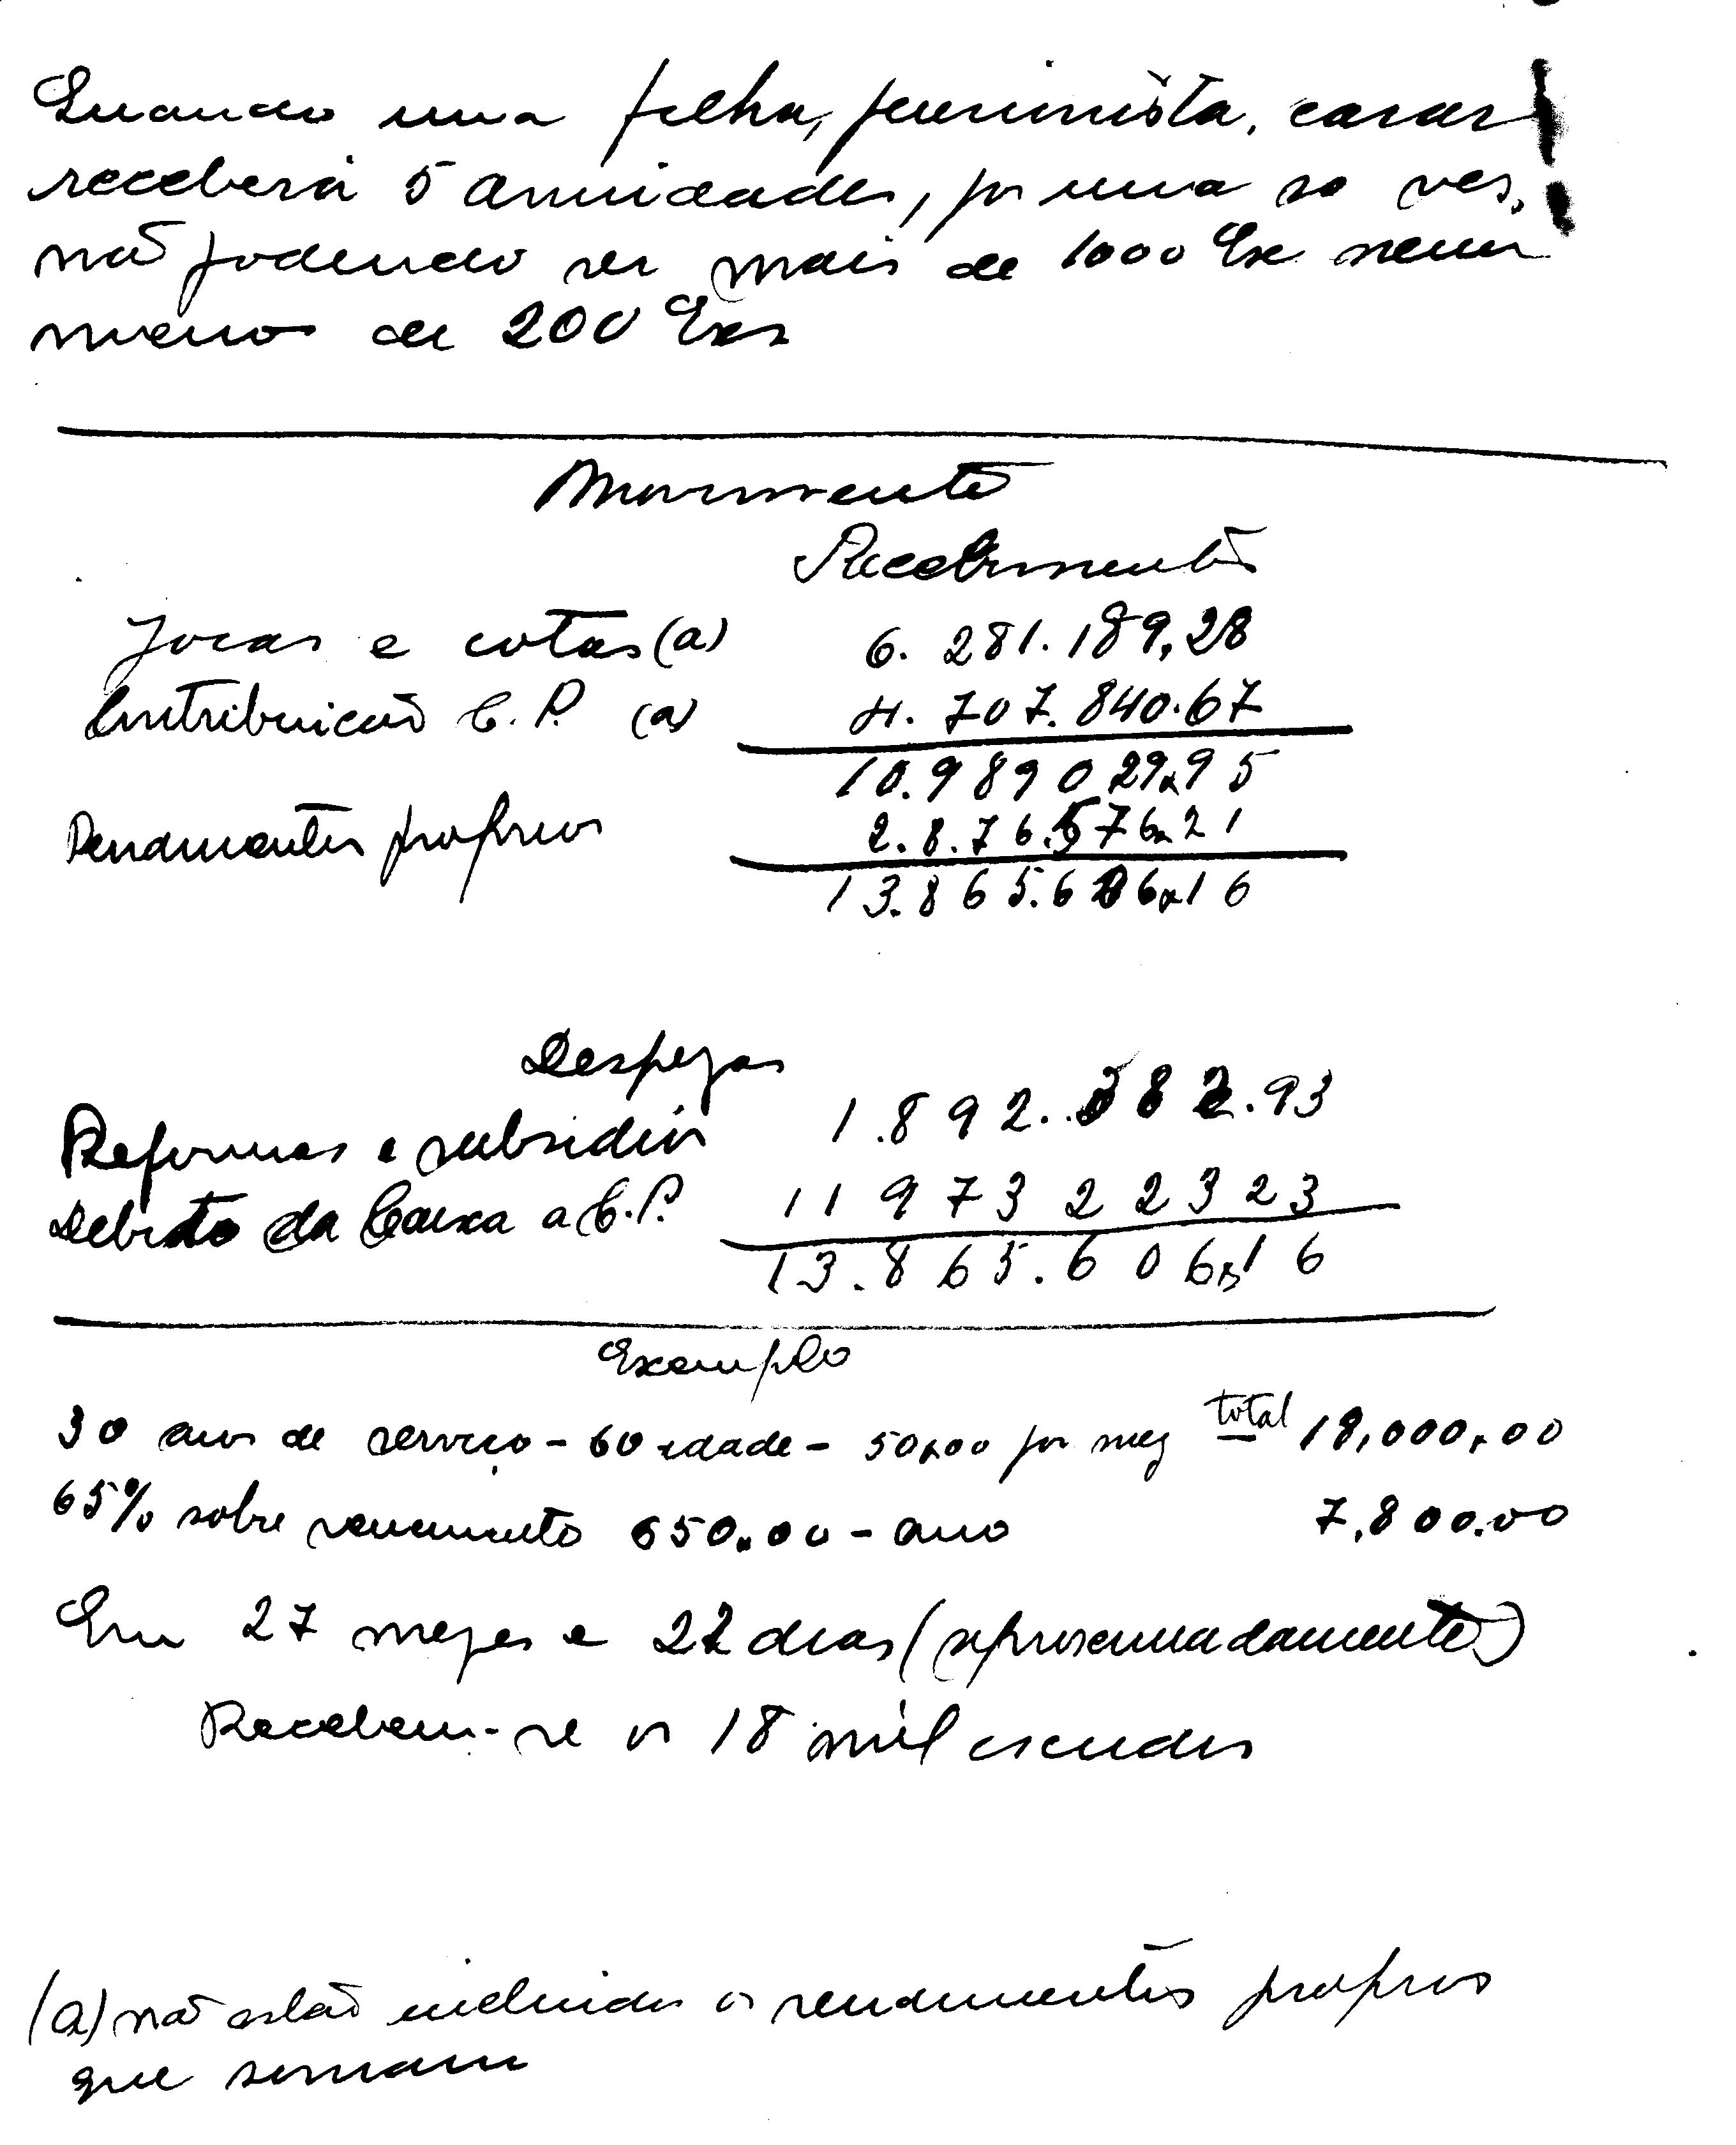 Quando uma filha, pensionista, casar
receberá 5 anuidades, por uma so ves,
não podendo ser mais de 1000 Esc nem
menos de 200 Escs
Movimento
Recebimentos
Joias e cotas (a) 6.281.189,28
Contribuicão C.P. (a) 4.707.840.67
10.989 029,95
Rendimentos proprios 2.8.76.576,21
13.865.606,16
Despezas
Reformas e subsidios 1.892.382.93
Debito da Caixa a C.P. 11 973 223 23
13.865.606,16
Exemplo
30 anos de serviço - 60 idade - 50,00 por mez total 18,000,00
65% sobre vencimento 650,00 - ano 7,800.00
Em 27 mezes e 22 dias (aproximadamente)
Recebem-se os 18 mil escudos
(a) não estão incluidos os rendimentos proprios
que somam